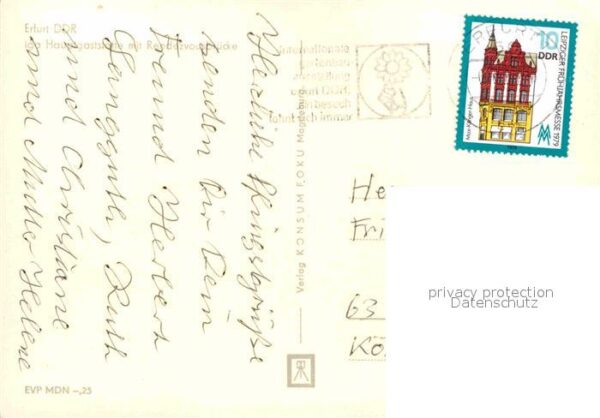 Erfurt DDR
iga Hauptgaststätte mit Rendezvousbrücke
Herzliche Pfingstgrüße
senden Dir Dein
Freund Herbert
Ruth
und Christiane
und Mutter Helene
EVP MDN –,25
Verlag KONSUM FOKU Magdeburg
Internationale
Gartenbau
ausstellung
der DDR
Ein Besuch
lohnt sich immer
10
DDR
LEIPZIGER FRÜHJAHRSMESSE 1979
MM
ERFURT
He
Fri
63
Kö
privacy protection
Datenschutz